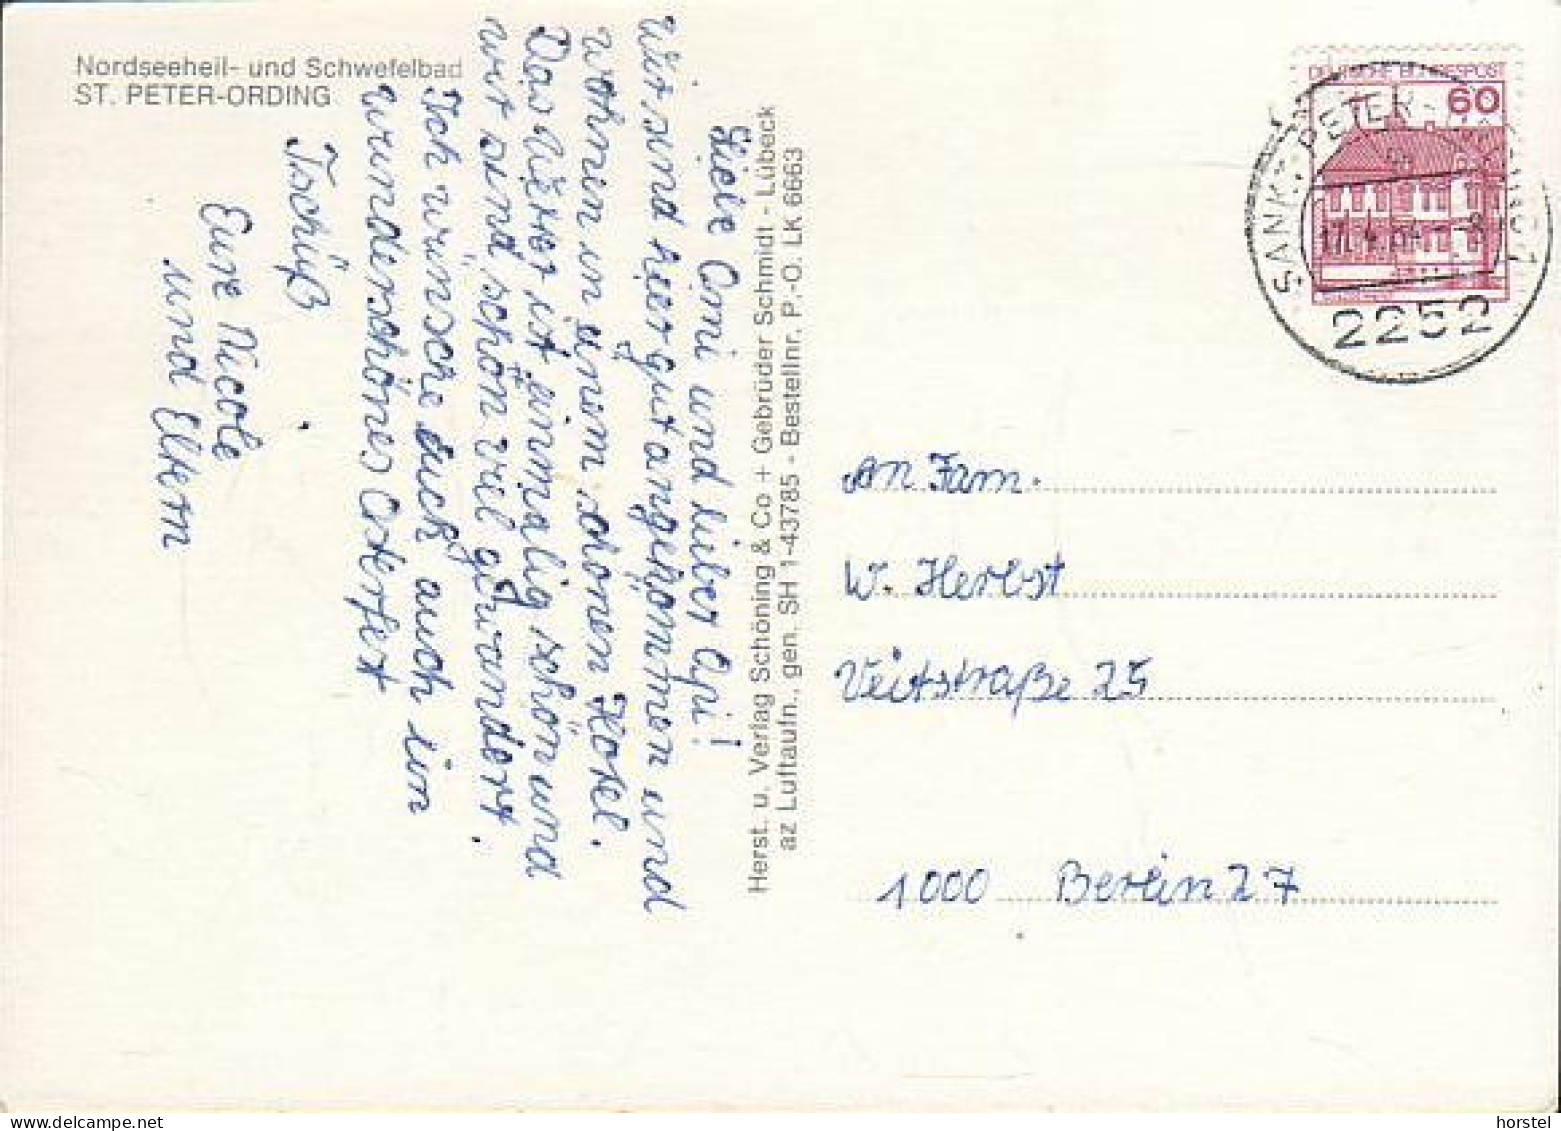 Nordseeheil- und Schwefelbad
ST. PETER-ORDING
Liebe Omi und lieber Opi!
Wir sind hier gut angekommen und
wohnen in einem schönen Hotel.
Das Wetter ist einmalig schön und
wir sind schon viel gewandert.
Ich wünsche euch auch ein
wunderschönes Osterfest
Tschüß
Eure Nicole
und Eltern
Herst. u. Verlag Schöning & Co + Gebrüder Schmidt - Lübeck
az Luftaufn., gen. SH 1-43785 - Bestellnr. P.-O. LK 6663
DEUTSCHE BUNDESPOST
60
SANKT PETER-ORDING 1
2252
An Fam.
W. Herbst
Veitstraße 25
1000 Berlin 27
horstel